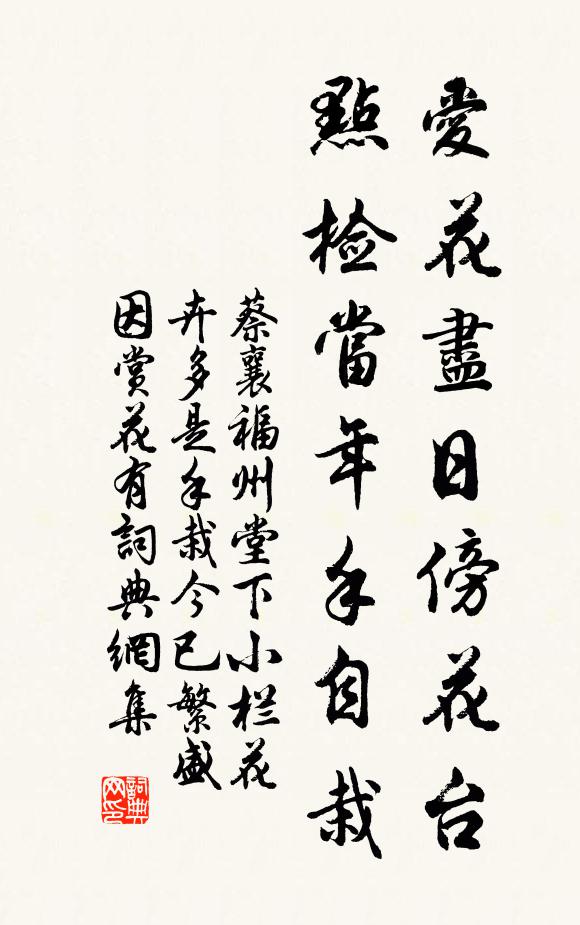 愛花盡日傍花台
點檢當年手自栽
蔡襄福州堂下小栏花
卉多是手栽今已繁盛
因赏花有詞典網集
詞典
网印